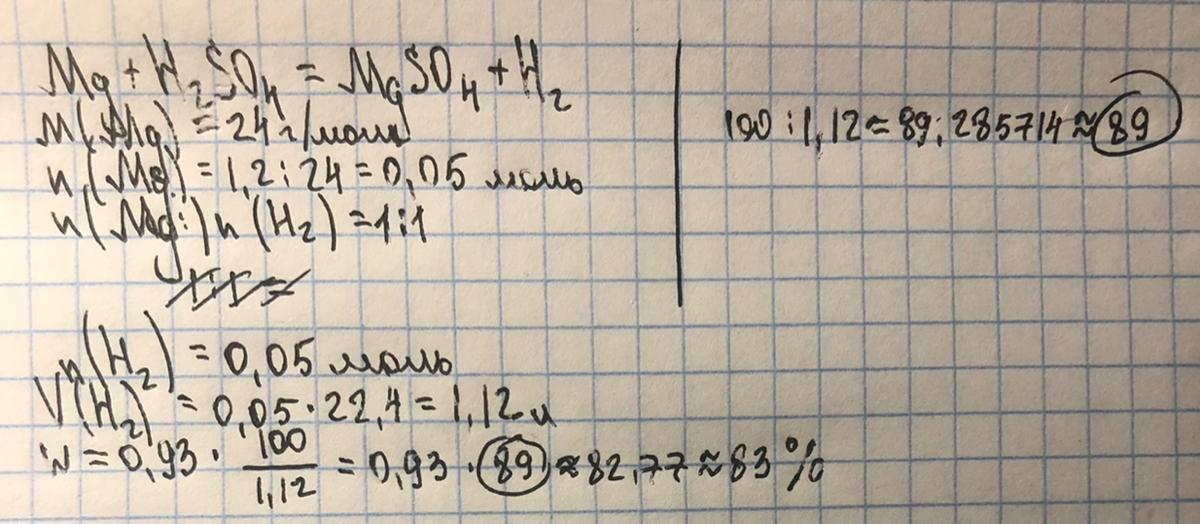 Mg + H₂SO₄ = MgSO₄ + H₂
M(Mg) = 24 г/моль
n(Mg) = 1,2 : 24 = 0,05 моль
n(Mg:) n(H₂) = 1:1
n(H₂) = 0,05 моль
V(H₂) = 0,05 · 22,4 = 1,12 л
w = 0,93 · 100/1,12 = 0,93 · 89 ≈ 82,77 ≈ 83 %
100 : 1,12 = 89,285714 ≈ 89